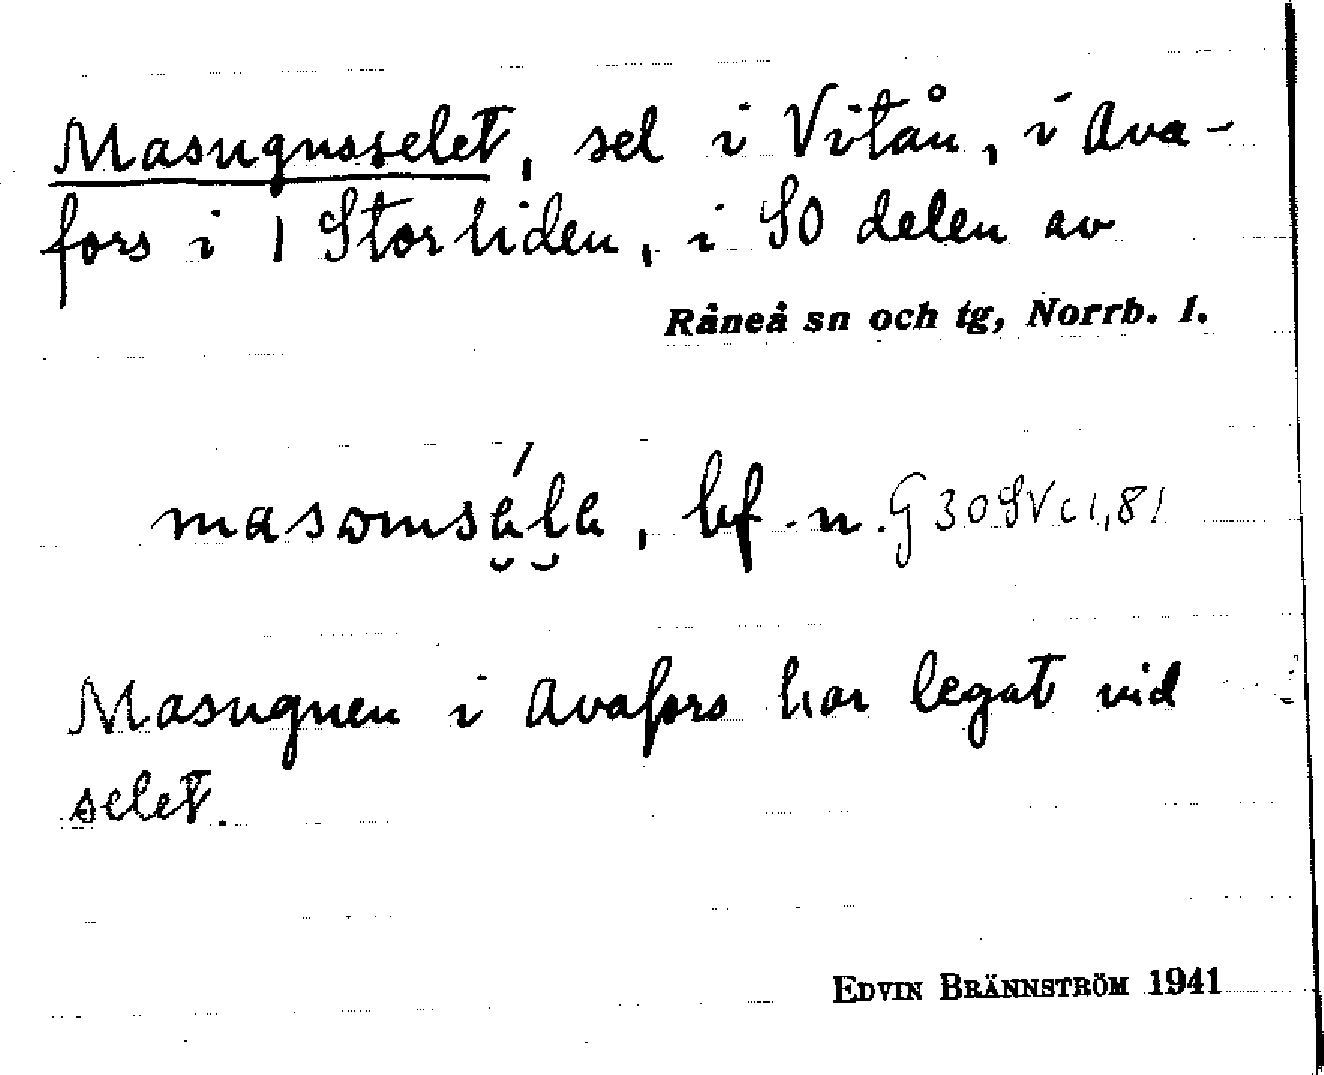 Masugnsselet, sel i Vitån, i Ava-
fors i 1 Storliden, i SO delen av
Råneå sn och tg, Norrb. l.
masomsela, bf. n. G 30 SV c 1, 81
Masugnen i Avafors har legat vid
selet.
EDVIN BRÄNNSTRÖM 1941